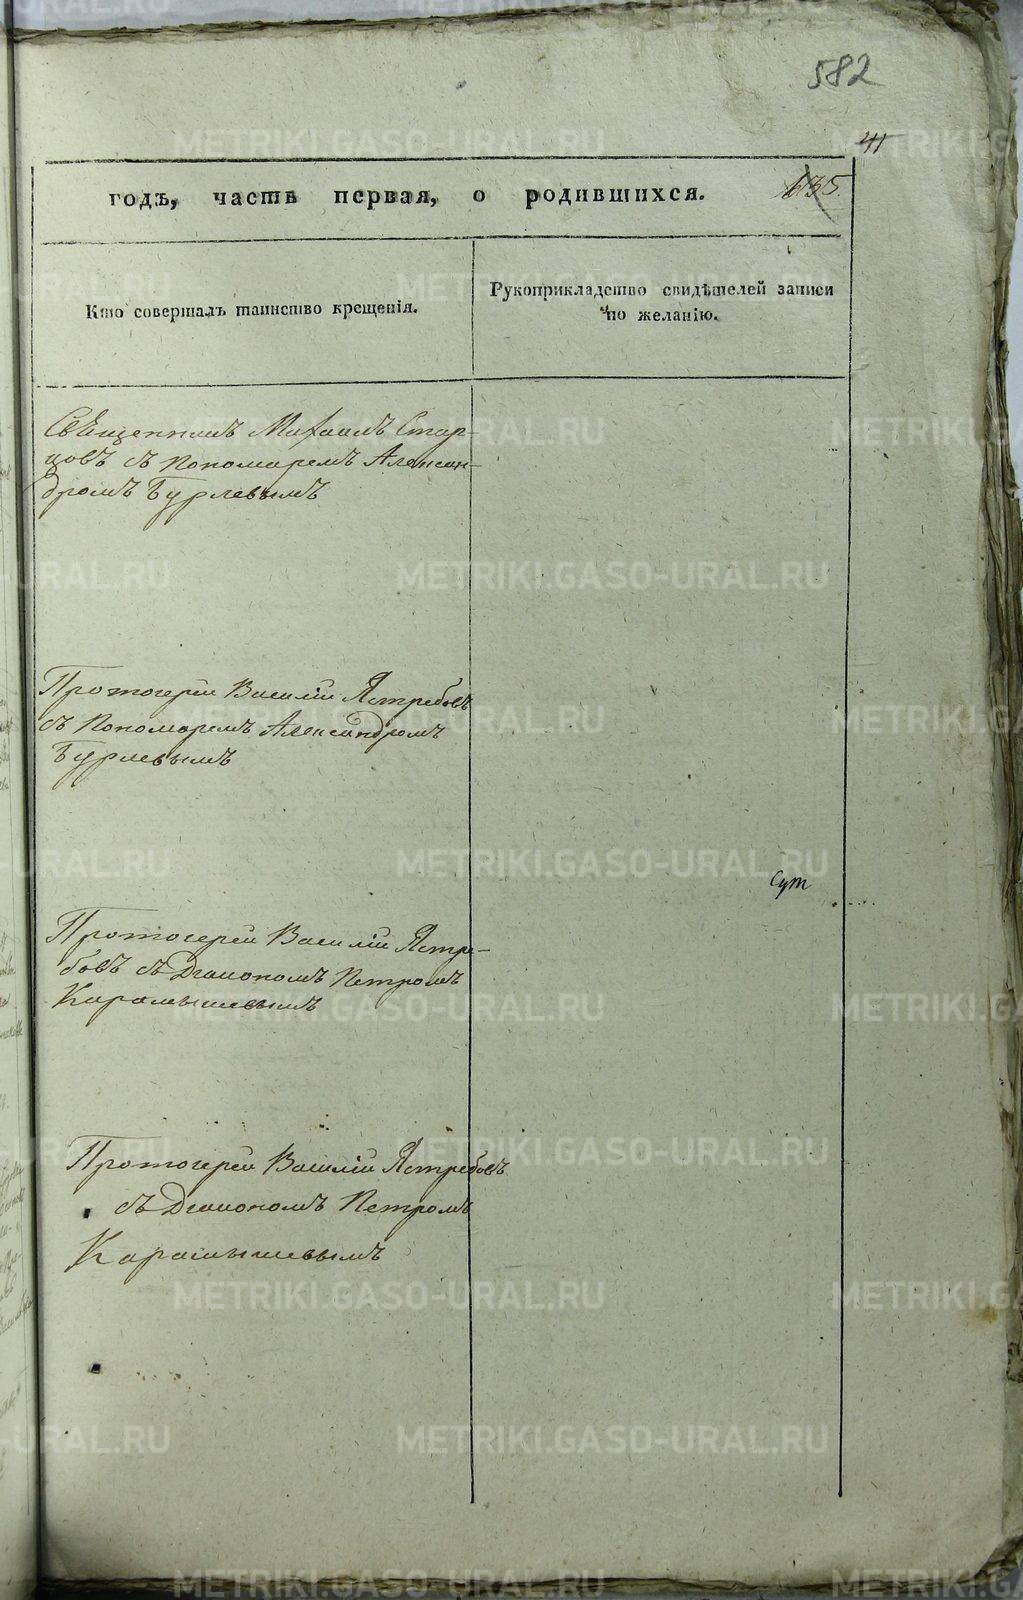 582
41
635.
годъ, часть первая, о родившихся.
Кто совершалъ таинство крещенія.
Рукоприкладство свидѣтелей записи
по желанію.
Священникъ Михаилъ Стар-
цовъ съ Пономаремъ Алексан-
дромъ Бурлевымъ
Протоіерей Василій Ястребовъ
съ Пономаремъ Александромъ
Бурлевымъ
Протоіерей Василій Ястре-
бовъ съ Діакономъ Петромъ
Карамышевымъ
Протоіерей Василій Ястребовъ
съ Діакономъ Петромъ
Карамышевымъ
METRIKI.GASO-URAL.RU